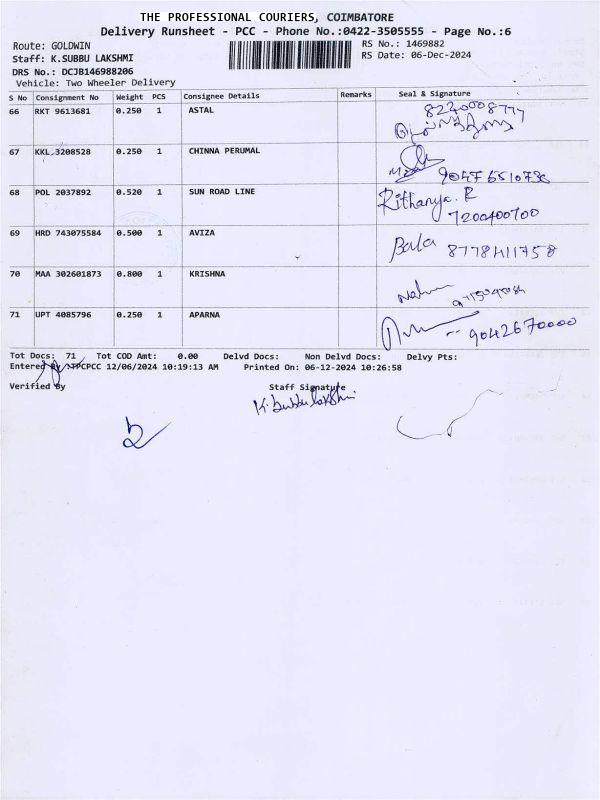 THE PROFESSIONAL COURIERS, COIMBATORE
Delivery Runsheet - PCC - Phone No.:0422-3505555 - Page No.:6
Route: GOLDWIN
RS No.: 1469882
Staff: K.SUBBU LAKSHMI
RS Date: 06-Dec-2024
DRS No.: DCJB146988206
Vehicle: Two Wheeler Delivery
S No Consignment No Weight PCS Consignee Details Remarks Seal & Signature
66 RKT 9613681 0.250 1 ASTAL
67 KKL 3208528 0.250 1 CHINNA PERUMAL
68 POL 2037892 0.520 1 SUN ROAD LINE Rithanya. R
7200400700
69 HRD 743075584 0.500 1 AVIZA Bala 8778411758
70 MAA 302601873 0.800 1 KRISHNA
71 UPT 4085796 0.250 1 APARNA 9042670000
Tot Docs: 71 Tot COD Amt: 0.00 Delvd Docs: Non Delvd Docs: Delvy Pts:
Entered By 12/06/2024 10:19:13 AM Printed On: 06-12-2024 10:26:58
Verified By Staff Signature
K. Subbulakshmi